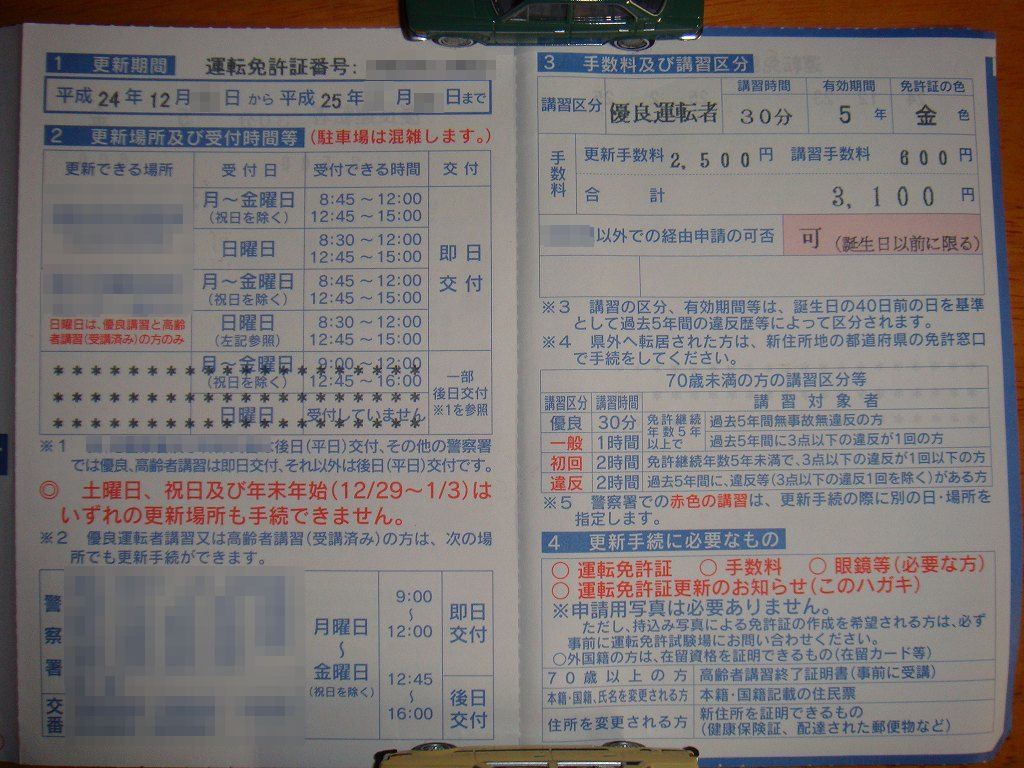 1 更新期間 運転免許証番号:
平成24年12月 日から平成25年 月 日まで
2 更新場所及び受付時間等(駐車場は混雑します。)
更新できる場所 受付日 受付できる時間 交付
月～金曜日 8:45～12:00
(祝日を除く) 12:45～15:00
日曜日 8:30～12:00
12:45～15:00
即日
交付
月～金曜日 8:45～12:00
(祝日を除く) 12:45～15:00
日曜日は、優良講習と高齢
者講習(受講済み)の方のみ
日曜日 8:30～12:00
(左記参照) 12:45～15:00
月～金曜日 9:00～12:00
(祝日を除く) 12:45～16:00
日曜日 受付していません
一部
後日交付
※1を参照
※1 は後日(平日)交付、その他の警察署
では優良、高齢者講習は即日交付、それ以外は後日(平日)交付です。
◎ 土曜日、祝日及び年末年始(12/29～1/3)は
いずれの更新場所も手続できません。
※2 優良運転者講習又は高齢者講習(受講済み)の方は、次の場
所でも更新手続ができます。
警察署
交番
月曜日
～
金曜日
(祝日を除く)
9:00
～
12:00
12:45
～
16:00
即日
交付
後日
交付
3 手数料及び講習区分
講習区分 優良運転者 講習時間 30分 有効期間 5年 免許証の色 金色
手数料 更新手数料 2,500円 講習手数料 600円
合計 3,100円
以外での経由申請の可否 可(誕生日以前に限る)
※3 講習の区分、有効期間等は、誕生日の40日前の日を基準
として過去5年間の違反歴等によって区分されます。
※4 県外へ転居された方は、新住所地の都道府県の免許窓口
で手続をしてください。
70歳未満の方の講習区分等
講習区分 講習時間 講習対象者
優良 30分 免許継続年数5年以上で 過去5年間無事故無違反の方
一般 1時間 過去5年間に3点以下の違反が1回の方
初回 2時間 免許継続年数5年未満で、3点以下の違反が1回以下の方
違反 2時間 過去5年間に、違反等(3点以下の違反1回を除く)がある方
※5 警察署での赤色の講習は、更新手続の際に別の日・場所を
指定します。
4 更新手続に必要なもの
○ 運転免許証 ○ 手数料 ○ 眼鏡等(必要な方)
○ 運転免許証更新のお知らせ(このハガキ)
※申請用写真は必要ありません。
ただし、持込み写真による免許証の作成を希望される方は、必ず
事前に運転免許試験場にお問い合わせください。
○外国籍の方は、在留資格を証明できるもの(在留カード等)
70歳以上の方 高齢者講習終了証明書(事前に受講)
本籍・国籍、氏名を変更される方 本籍・国籍記載の住民票
住所を変更される方 新住所を証明できるもの
(健康保険証、配達された郵便物など)